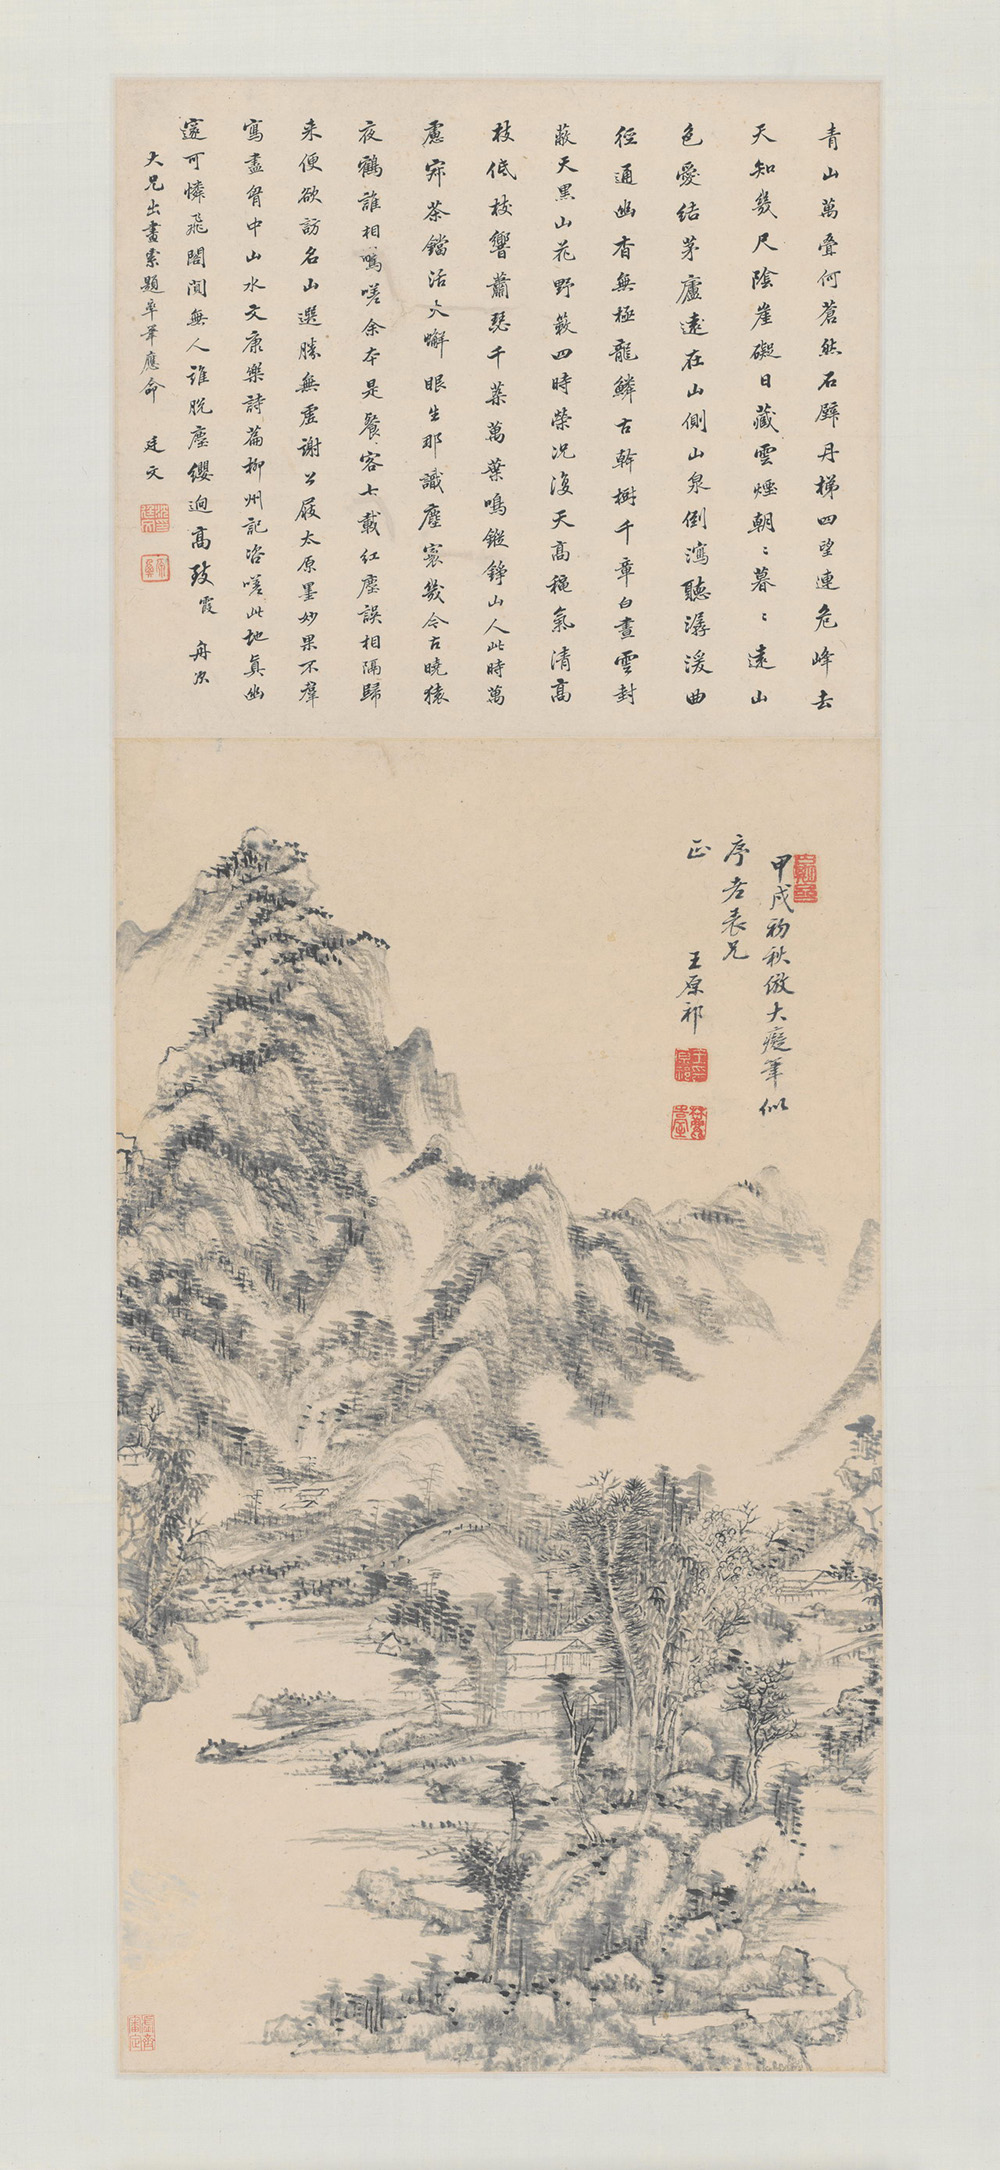 青山萬疊何蒼然石壁丹梯四望連危峰去
天知幾尺陰崖礙日藏雲煙朝〻暮〻遠山
色愛結茅廬遠在山側山泉倒瀉聽潺湲曲
徑通幽杳無極龍鱗古幹樹千章白晝雲封
蔽天黑山花野蔌四時榮況復天高穐氣清高
枝低枝響蕭瑟千葉萬葉鳴鏦錚山人此時萬
慮寂茶鐺活火蠏眼生那識塵寰幾今古曉猿
夜鶴誰相鳴嗟余本是餐客七載紅塵誤相隔歸
来便欲訪名山選勝無虛謝公屐太原墨妙果不羣
寫盡胷中山水文康樂詩篇柳州記咨嗟此地真幽
邃可憐飛閣闃無人誰脫塵纓迥高致霞舟次
大兄出畫索題率筆應命 廷文
甲戌初秋倣大癡筆似
序老表兄
正 王原祁
王原祁